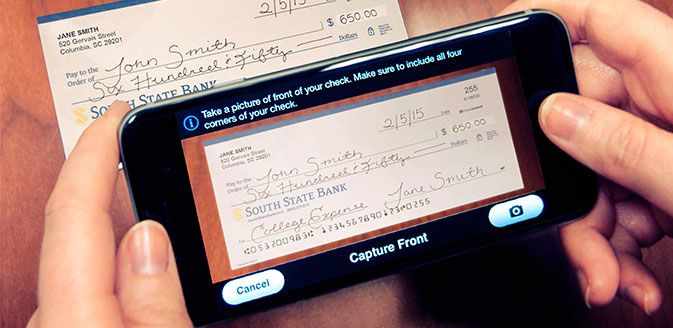 JANE SMITH
520 Gervais Street
Columbia, SC 29201
2/5/15
$ 650.00
Pay to the
Order of John Smith
Six Hundred & Fifty
Dollars
SOUTH STATE BANK
Take a picture of front of your check. Make sure to include all four
corners of your check.
255
JANE SMITH
520 Gervais Street
Columbia, SC 29201
2/5/15
Date
Pay to the
Order of John Smith
$ 650.00
Six Hundred & Fifty
Dollars
SOUTH STATE BANK
College Expense
Jane Smith
Capture Front
Cancel